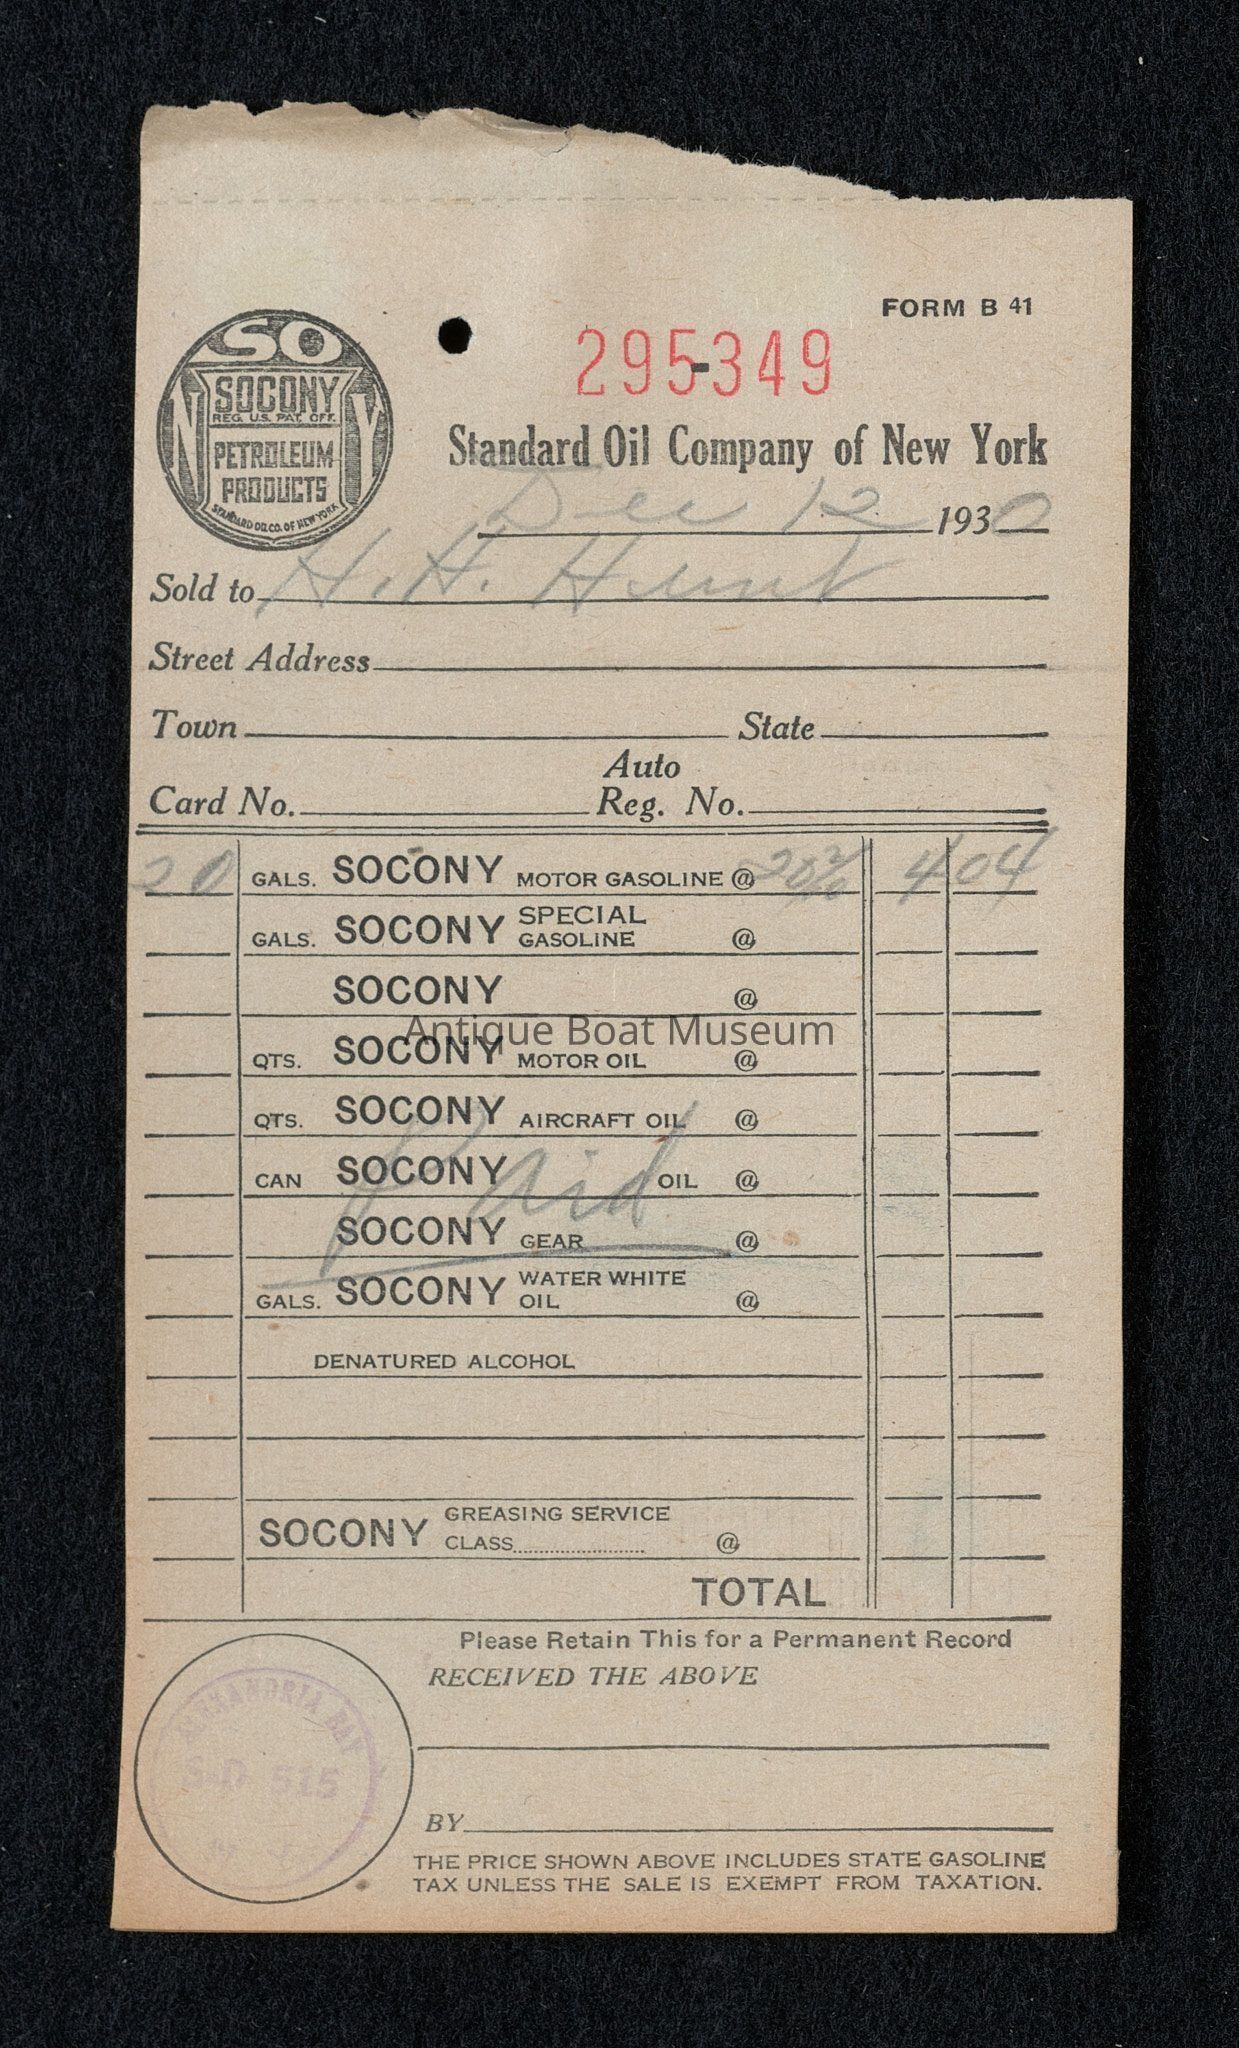 FORM B 41
295-349
SO
N Y
SOCONY
REG. U.S. PAT. OFF.
PETROLEUM
PRODUCTS
STANDARD OIL CO. OF NEW YORK
Standard Oil Company of New York
Dec 12 1930
Sold to H. H. Hunt
Street Address
Town State
Auto
Card No. Reg. No.
20 GALS. SOCONY MOTOR GASOLINE @ 20 2/10 4 04
GALS. SOCONY SPECIAL GASOLINE @
SOCONY @
Antique Boat Museum
QTS. SOCONY MOTOR OIL @
QTS. SOCONY AIRCRAFT OIL @
CAN SOCONY OIL @
Paid
SOCONY GEAR @
GALS. SOCONY WATER WHITE OIL @
DENATURED ALCOHOL
SOCONY GREASING SERVICE
CLASS @
TOTAL
Please Retain This for a Permanent Record
RECEIVED THE ABOVE
ALEXANDRIA BAY
S-D 515
N. Y.
BY
THE PRICE SHOWN ABOVE INCLUDES STATE GASOLINE
TAX UNLESS THE SALE IS EXEMPT FROM TAXATION.